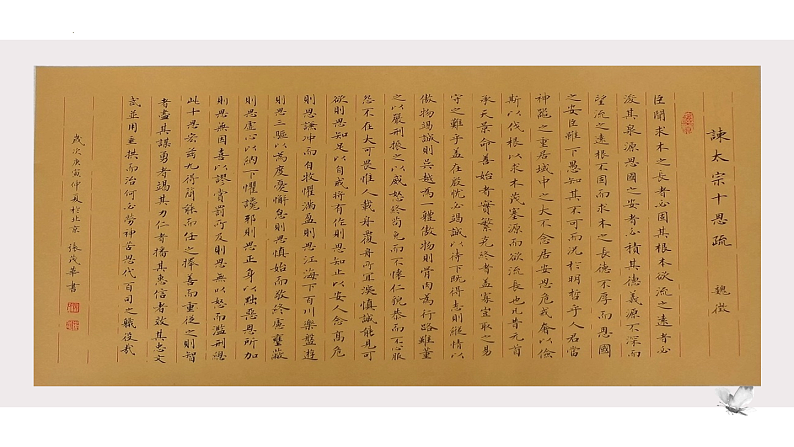 諫太宗十思疏 魏徵
臣聞求木之長者必固其根本欲流之遠者必
浚其泉源思國之安者必積其德義源不深而
望流之遠根不固而求木之長德不厚而思國
之安臣雖下愚知其不可而況於明哲乎人君當
神器之重居域中之大不念居安思危戒奢以儉
斯以伐根以求木茂塞源而欲流長也凡昔元首
承天景命善始者實繁克終者蓋寡豈取之易
守之難乎蓋在殷憂必竭誠以待下既得志則縱情以
傲物竭誠則吳越為一體傲物則骨肉為行路雖董
之以嚴刑振之以威怒終苟免而不懷仁貌恭而不心服
怨不在大可畏惟人載舟覆舟所宜深慎誠能見可
欲則思知足以自戒將有作則思知止以安人念高危
則思謙沖而自牧懼滿盈則思江海下百川樂盤遊
則思三驅以為度憂懈怠則思慎始而敬終慮壅蔽
則思虛心以納下懼讒邪則思正身以黜惡恩所加
則思無因喜以謬賞罰所及則思無以怒而濫刑總
此十思宏茲九得簡能而任之擇善而從之則智
者盡其謀勇者竭其力仁者播其惠信者效其忠文
武並用垂拱而治何必勞神苦思代百司之職役哉
歲次庚寅仲夏於北京 張茂華書